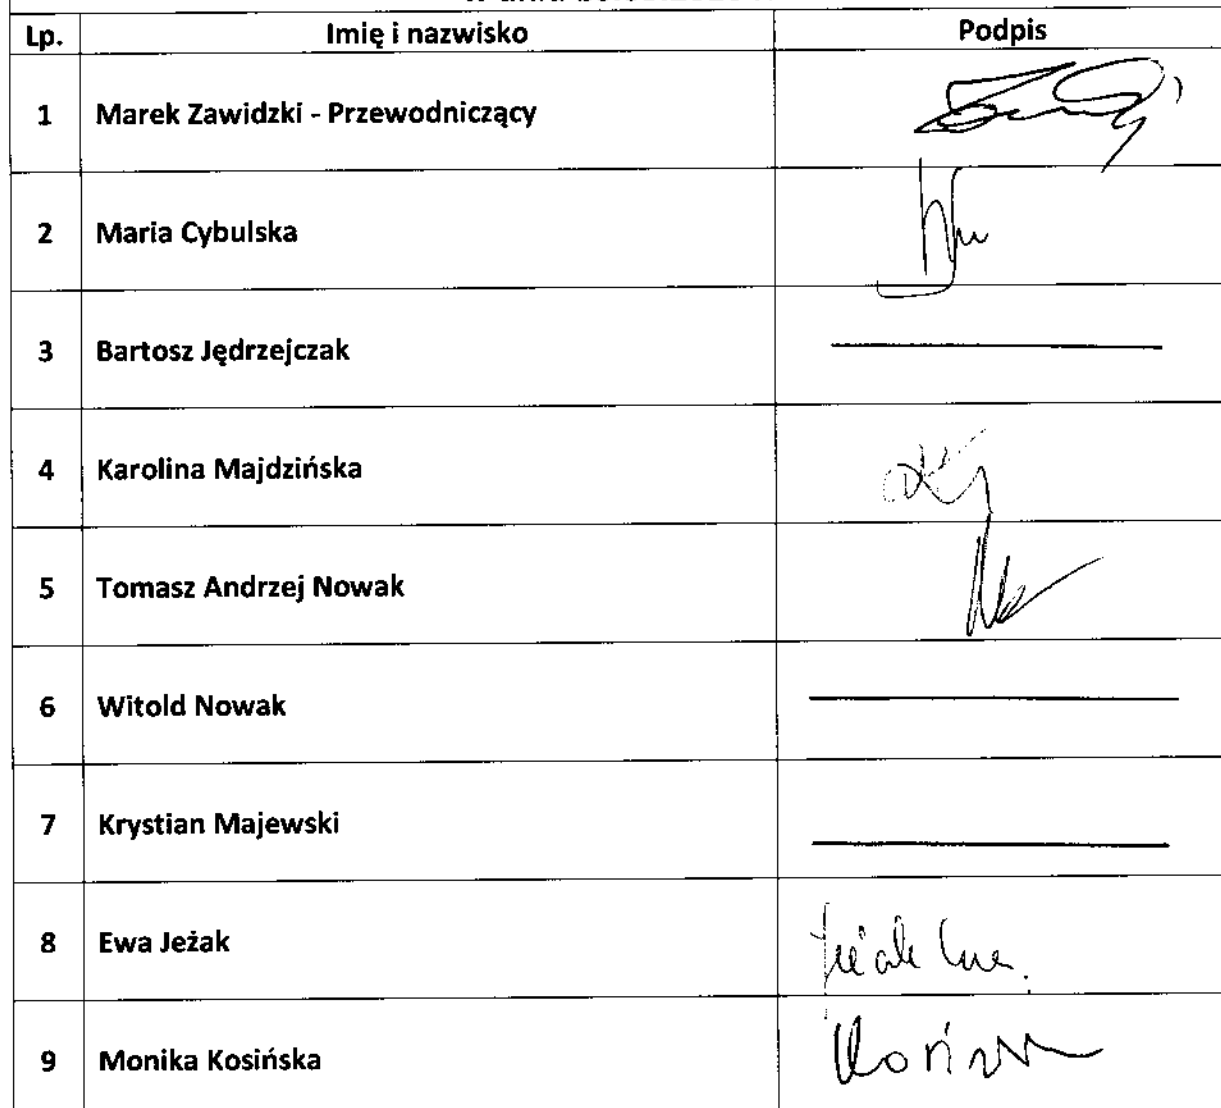 Lp. Imię i nazwisko Podpis
1 Marek Zawidzki - Przewodniczący
2 Maria Cybulska
3 Bartosz Jędrzejczak
4 Karolina Majdzińska
5 Tomasz Andrzej Nowak
6 Witold Nowak
7 Krystian Majewski
8 Ewa Jeżak Jeżak Ewa.
9 Monika Kosińska